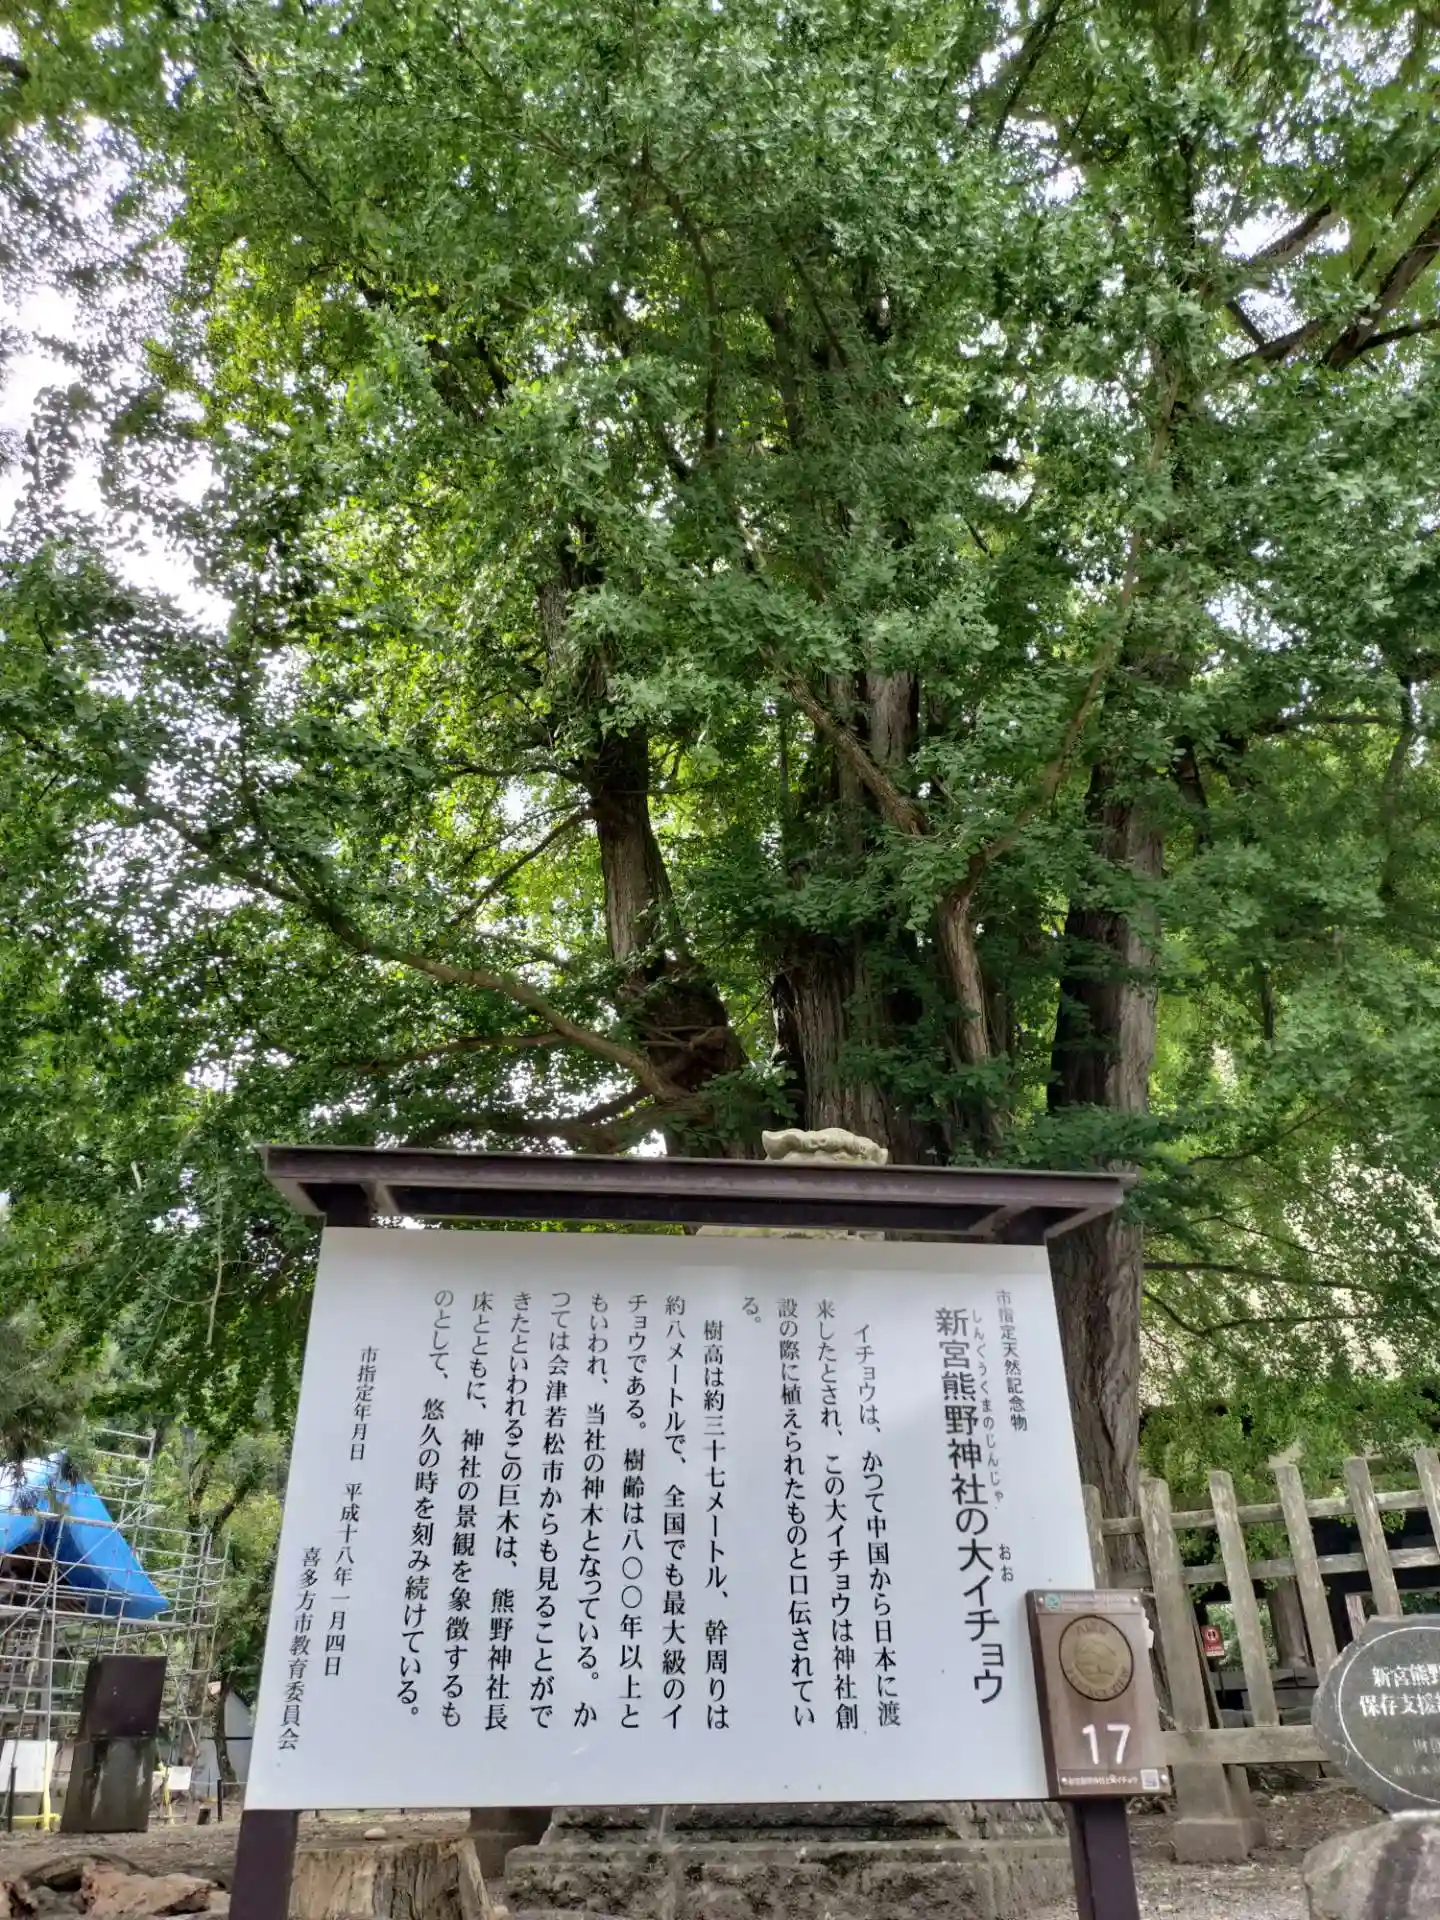 市指定天然記念物
しんぐうくまのじんじゃ おお
新宮熊野神社の大イチョウ
イチョウは、かつて中国から日本に渡
来したとされ、この大イチョウは神社創
設の際に植えられたものと口伝されてい
る。
樹高は約三十七メートル、幹周りは
約八メートルで、全国でも最大級のイ
チョウである。樹齢は八〇〇年以上と
もいわれ、当社の神木となっている。か
つては会津若松市からも見ることがで
きたといわれるこの巨木は、熊野神社長
床とともに、神社の景観を象徴するも
のとして、悠久の時を刻み続けている。
市指定年月日 平成十八年一月四日
喜多方市教育委員会
17
新宮熊野
保存支援